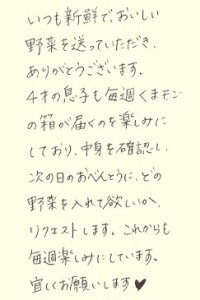 いつも新鮮で、おいしい
野菜を送っていただき、
ありがとうございます。
4才の息子も毎週くまモン
の箱が届くのを楽しみに
しており、中身を確認し、
次の日のおべんとうに、どの
野菜を入れて欲しいか、
リクエストします。これからも
毎週楽しみにしています。
宜しくお願いします♥